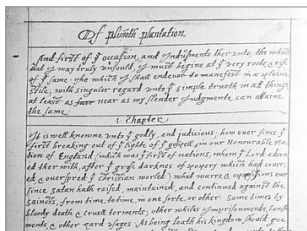 Of plimoth plantation
And first of yͤ occasion, and Indusments ther unto; the which
that I may truly unfould, I must begine at yͤ very roote & rise
of yͤ same. The which I shall endevor to manefest in a plaine
stile; with singuler regard unto yͤ simple trueth in all things,
at least as farr near as my slender Judgmente can attaine
the same.
1. Chapter
It is well knowne unto yͤ godly, and judicious; how ever since yͤ
first breaking out of yͤ light of yͤ gospell, in our Honourable na-
tion of England (which was yͤ first of nations, whom yͤ Lord adorn-
ed ther with, after yͤ grose darknes of popery which had cover-
ed & overspred yͤ christian world) what warrs, & oppossitions ever
since satan hath raised, maintained, and continued against the
saincts, from time, to time, in one sorte, or other. Some times by
bloody death & cruell torments; other whiles Imprisonments, banish-
ments, & other hard usages. As being loath his kingdom should goe